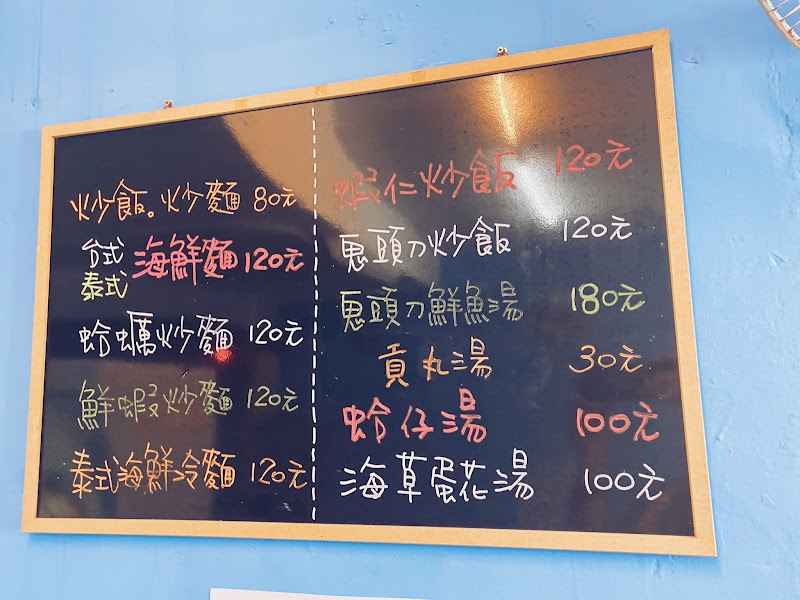 炒飯。炒麵 80元
台式
泰式 海鮮麵 120元
蛤蠣炒麵 120元
鮮蝦炒麵 120元
泰式海鮮冷麵 120元
蝦仁炒飯 120元
鬼頭刀炒飯 120元
鬼頭刀鮮魚湯 180元
貢丸湯 30元
蛤仔湯 100元
海草蛋花湯 100元